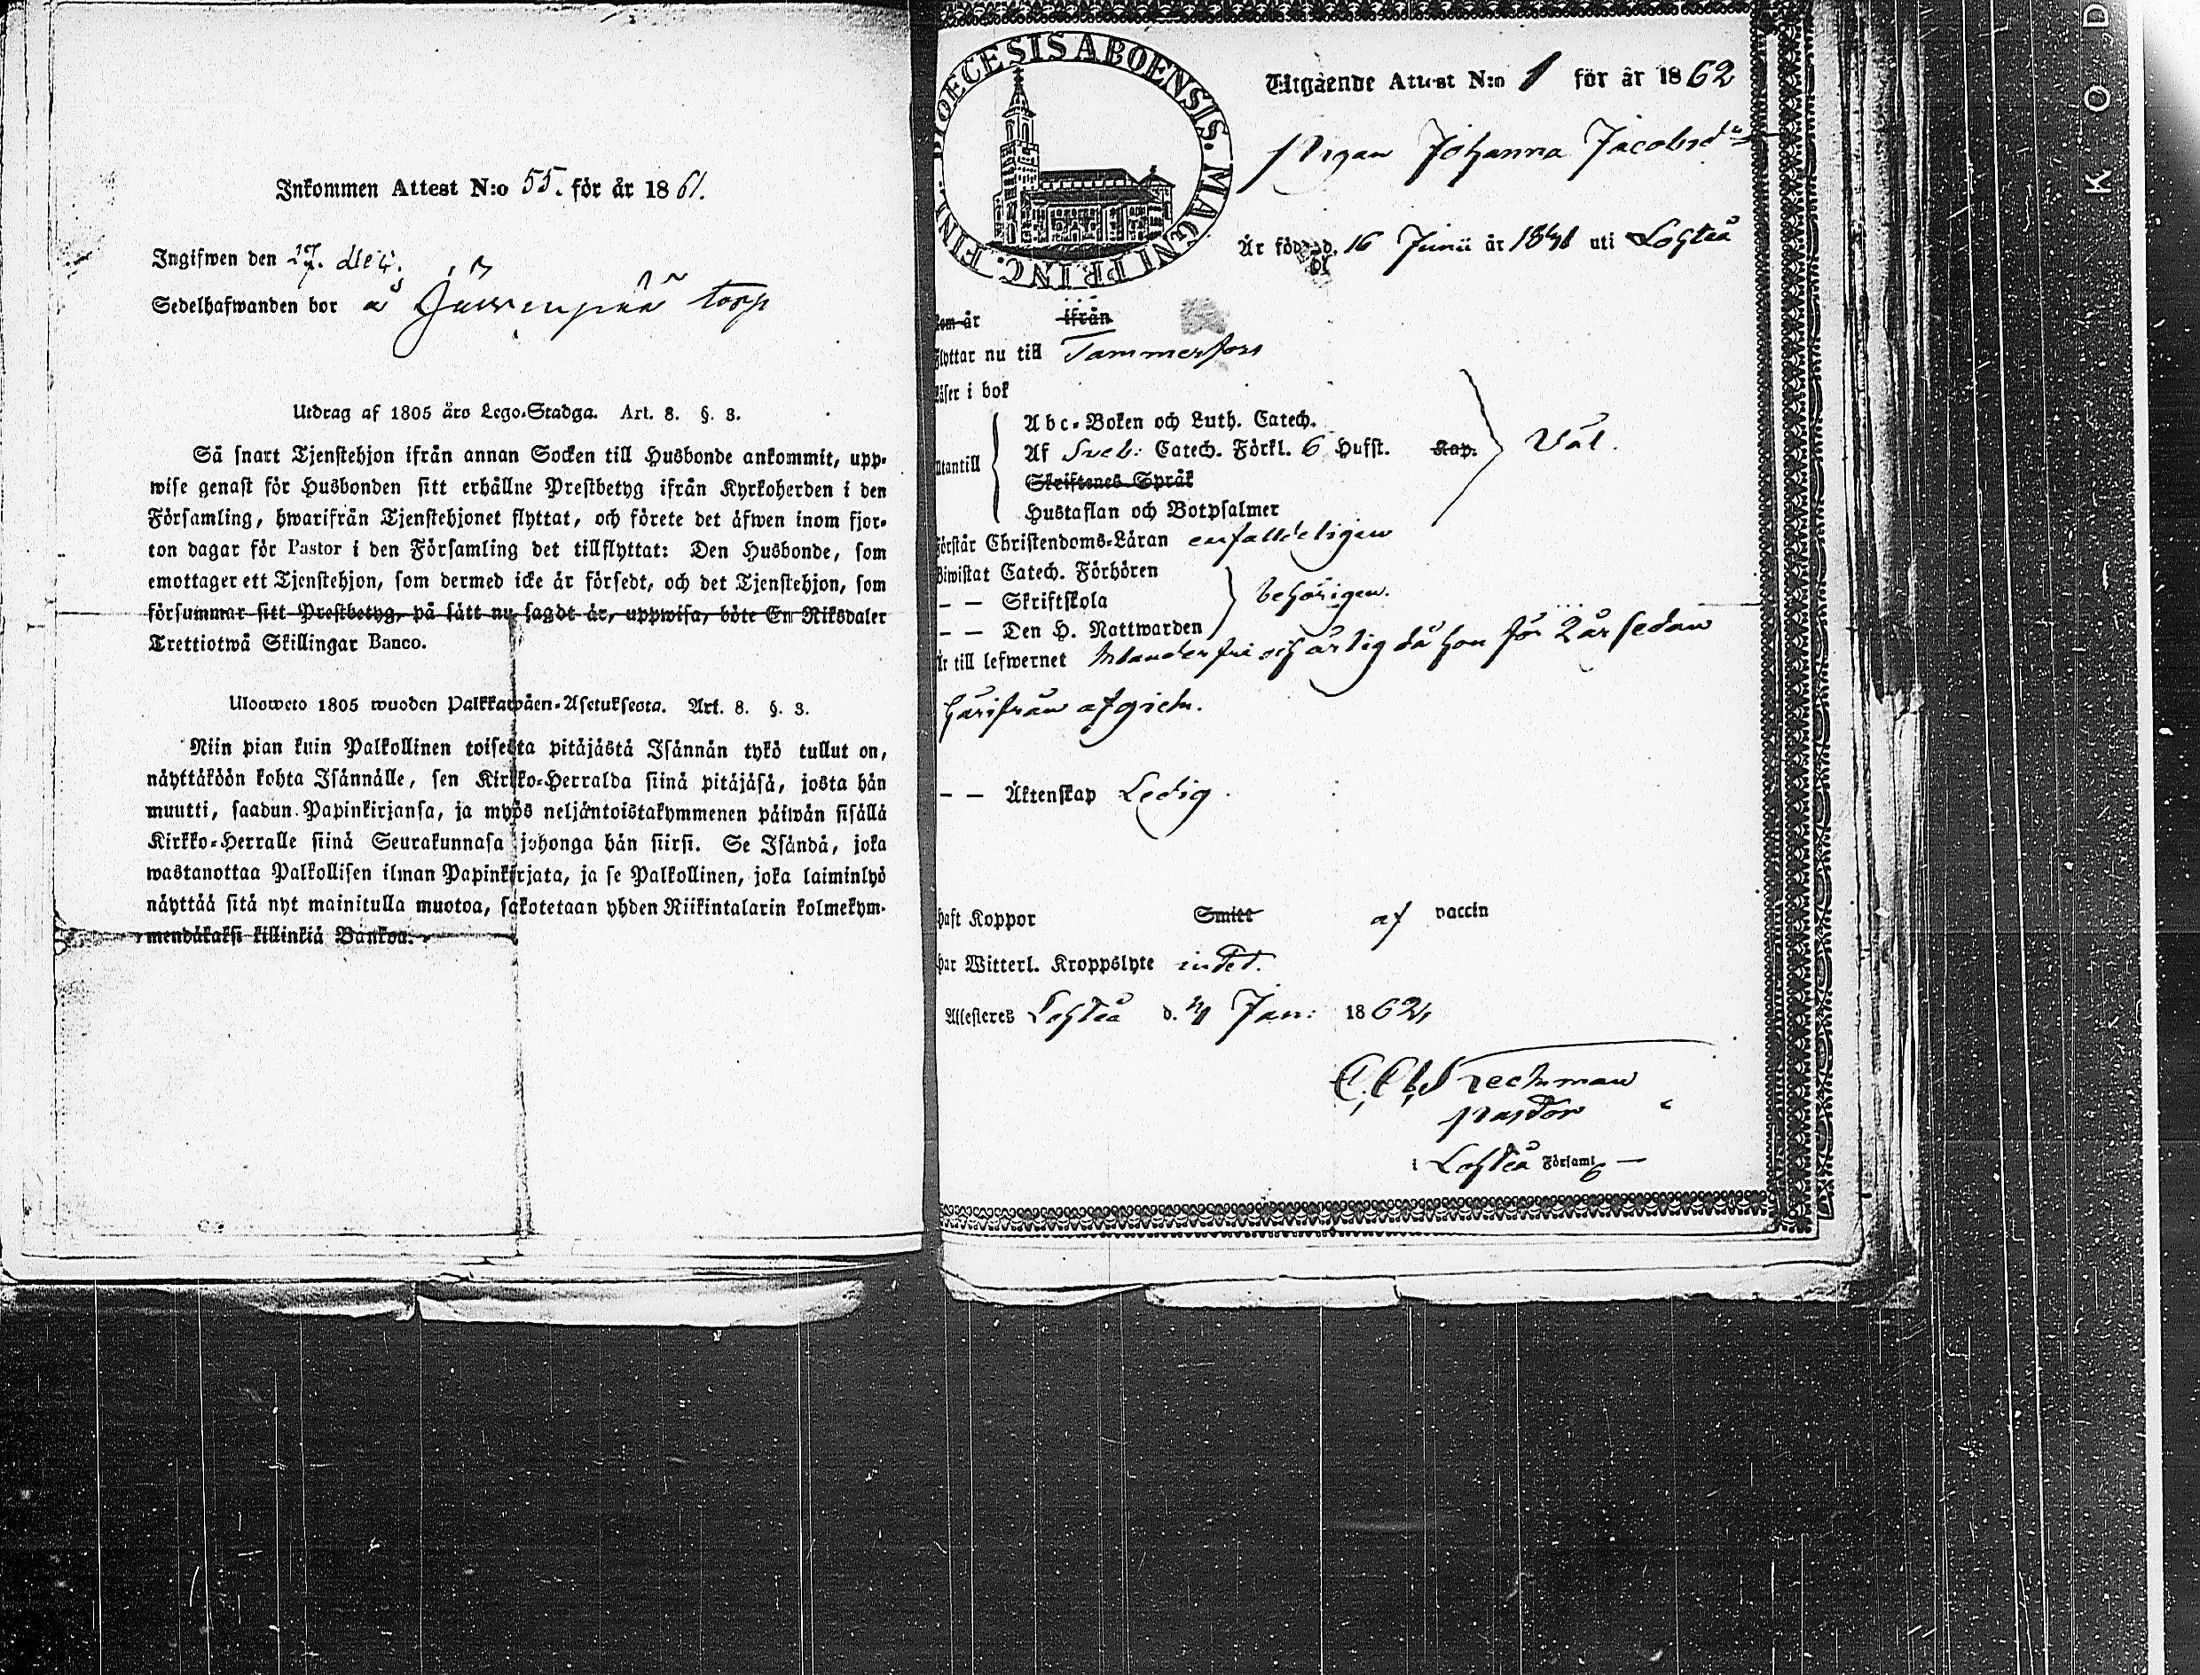 Inkommen Attest N:o 55. för år 1861.
Ingifwen den 27. dec.
Sedelhafwanden bor å Järvenpää torp
Utdrag af 1805 års Lego-Stadga. Art. 8. §. 3.
Så snart Tjenstehjon ifrån annan Socken till Husbonde ankommit, upp-
wise genast för Husbonden sitt erhållne Prestbetyg ifrån Kyrkoherden i den
Församling, hwarifrån Tjenstehjonet flyttat, och förete det äfwen inom fjor-
ton dagar för Pastor i den Församling det tillflyttat: Den Husbonde, som
emottager ett Tjenstehjon, som dermed icke är försedt, och det Tjenstehjon, som
försummar sitt Prestbetyg, på sätt nu sagdt är, uppwisa, böte En Riksdaler
Trettiotwå Skillingar Banco.
Ulosweto 1805 wuoden Palkkawäen-Asetuksesta. Art. 8. §. 3.
Niin pian kuin Palkollinen toisesta pitäjästä Isännän tykö tullut on,
näyttäköön kohta Isännälle, sen Kirkko-Herralda siinä pitäjäsä, josta hän
muutti, saadun Papinkirjansa, ja myös neljäntoistakymmenen päiwän sisällä
Kirkko-Herralle siinä Seurakunnasa johonga hän siirsi. Se Isändä, joka
wastanottaa Palkollisen ilman Papinkirjata, ja se Palkollinen, joka laiminlyö
näyttää sitä nyt mainitulla muotoa, sakotetaan yhden Riikintalarin kolmekym-
mendäkaksi killinkiä Bankoa.
DIOECESIS ABOENSIS. MAGNI PRINC. FINL.
Utgående Attest N:o 1 för år 1862
Pigan Johanna Jacobsdr
Är född d. 16 Junii år 1841 uti Lohteå
Kom år ifrån
Flyttar nu till Tammerfors
Läser i bok
Abc-Boken och Luth. Catech.
Utantill Af Sveb: Catech. Förkl. 6 Hufst. Kap. Väl.
Skriftenes Språk
Hustaflan och Botpsalmer
Förstår Christendoms-Läran enfalldeligen
Biwistat Catech. Förhören
– – Skriftskola behörigen.
– – Den H. Nattwarden
Är till lefwernet klanderfri och ärlig då hon för 2 år sedan
härifrån afgick.
– – Äktenskap Ledig
haft Koppor Smitt af vaccin
har Witterl. Kroppslyte intet.
Attesteras Lohteå d. Jan: 1862,
pastor
i Lohteå Församl.
KOD